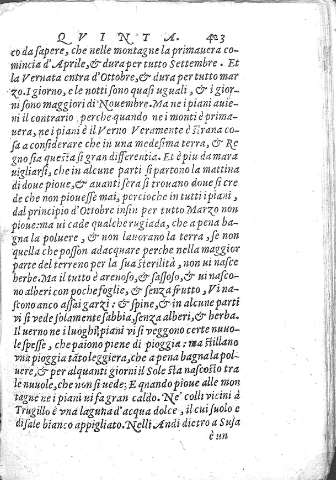 QVINTA. 423
co da sapere, che nelle montagne la primauera co-
mincia d'Aprile, & dura per tutto Settembre. Et
la Vernata entra d'Ottobre, & dura per tutto mar
zo. I giorno, e le notti sono quasi uguali, & i gior-
ni sono maggiori di Nouembre. Ma ne i piani auie
ni il contrario perche quando nei monti è prima-
uera, ne i piani è il Verno Veramente è strana co-
sa a considerare che in una medesima terra, & Re
gno sia questa si gran differentia. Et è piu da mara
uigliarsi, che in alcune parti si partono la mattina
di doue pioue, & auanti sera si trouano doue si cre
de che non piouesse mai, percioche in tutti i piani,
dal principio d'Ottobre infin per tutto Marzo non
pioue: ma ui cade qualche rugiada, che a pena ba-
gna la poluere, & non lauorano la terra, se non
quella che posson adacquare perche nella maggior
parte del terreno per la sua sterilità, non ui nasce
herbe. Ma il tutto è arenoso, & sassoso, & ui nasco-
no alberi con poche foglie, & senza frutto, Vi na-
scono anco assai garzi: & spine, & in alcune parti
vi si vede solamente sabbia, senza alberi, & herba.
Il uerno ne i luoghi piani vi si veggono certe nuuo-
le spesse, che paiono piene di pioggia: ma stillano
vna pioggia tãto leggiera, che a pena bagna la pol-
uere, & per alquanti giorni il Sole sta nascosto tra
le nuuole, che non si uede: E quando pioue alle mon
tagne ne i piani ui fa gran caldo. Ne' colli vicini à
Trugillo è vna laguna d'acqua dolce, il cui suolo e
di sale bianco appigliato. Nelli Andi dietro a Susa
è un